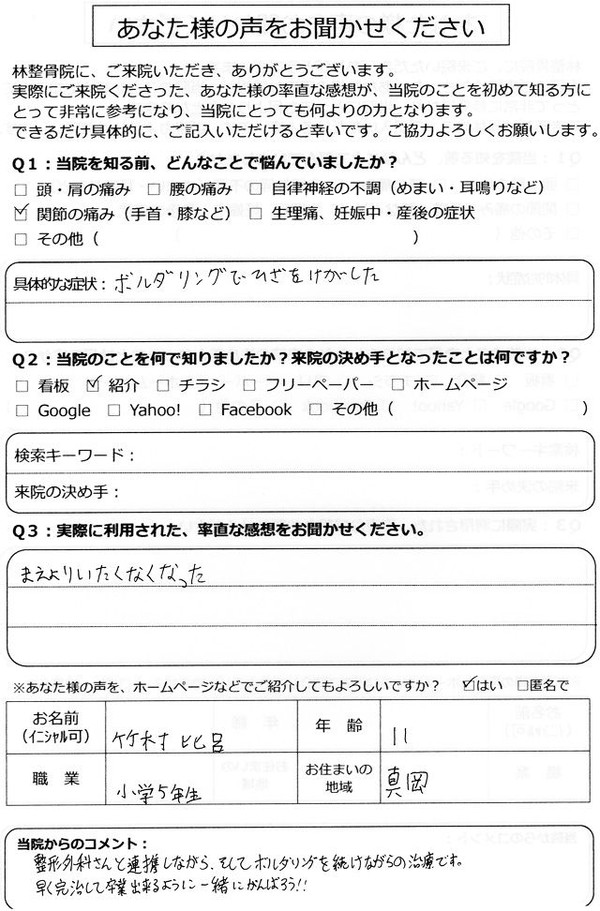 あなた様の声をお聞かせください
林整骨院に、ご来院いただき、ありがとうございます。
実際にご来院くださった、あなた様の率直な感想が、当院のことを初めて知る方に
とって非常に参考になり、当院にとっても何よりの力となります。
できるだけ具体的に、ご記入いただけると幸いです。ご協力よろしくお願いします。
Q1：当院を知る前、どんなことで悩んでいましたか？
□ 頭・肩の痛み □ 腰の痛み □ 自律神経の不調（めまい・耳鳴りなど）
☑ 関節の痛み（手首・膝など） □ 生理痛、妊娠中・産後の症状
□ その他（ ）
具体的な症状：ボルダリングでひざをけがした
Q2：当院のことを何で知りましたか？来院の決め手となったことは何ですか？
□ 看板 ☑ 紹介 □ チラシ □ フリーペーパー □ ホームページ
□ Google □ Yahoo! □ Facebook □ その他（ ）
検索キーワード：
来院の決め手：
Q3：実際に利用された、率直な感想をお聞かせください。
まえよりいたくなくなった
※あなた様の声を、ホームページなどでご紹介してもよろしいですか？ ☑はい □匿名で
お名前
（ｲﾆｼｬﾙ可） 竹村 比呂 年 齢 11
職 業 小学5年生 お住まいの
地域 真岡
当院からのコメント：
整形外科さんと連携しながら、そしてボルダリングを続けながらの治療です。
早く完治して卒業出来るように一緒にがんばろう!!